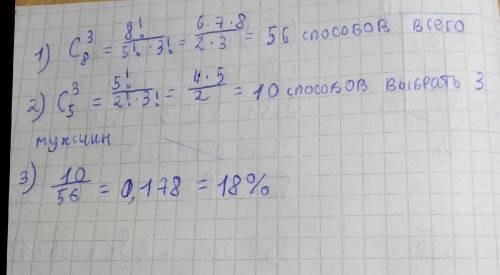 1) C₈³ = 8!/(5!·3!) = (6·7·8)/(2·3) = 56 способов всего
2) C₅³ = 5!/(2!·3!) = (4·5)/2 = 10 способов выбрать 3
мужчин
3) 10/56 = 0,178 = 18%